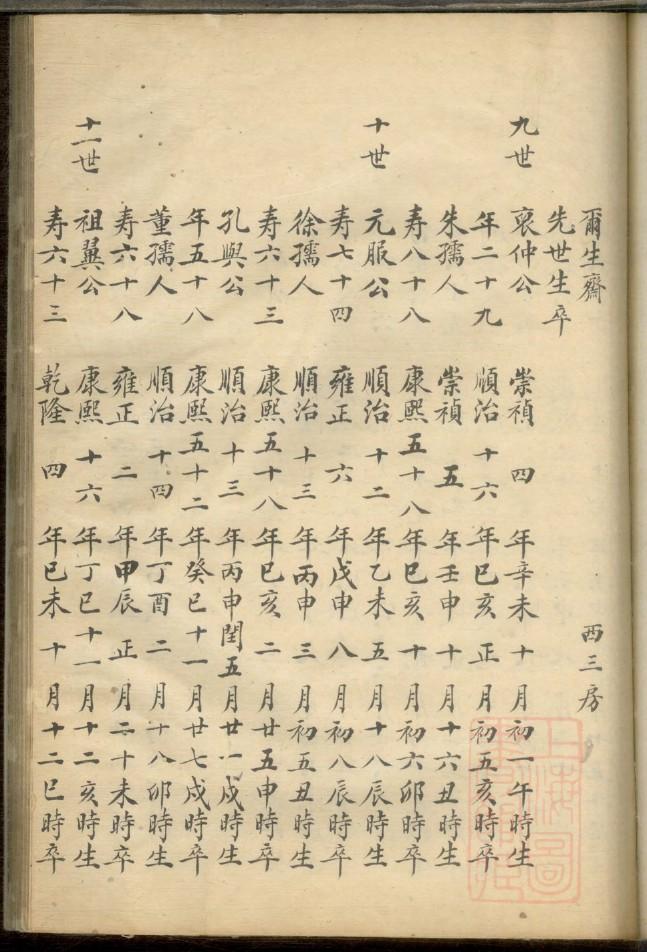 爾生齋 西三房
先世生卒
九世 裒仲公 崇禎四年辛未十月初一午時生
年二十九 順治十六年巳亥正月初五亥時卒
朱孺人 崇禎五年壬申十月十六丑時生
寿八十八 康熙五十八年巳亥十月初六卯時卒
十世 元服公 順治十二年乙未五月十八辰時生
寿七十四 雍正六年戊申八月初八辰時卒
徐孺人 順治十三年丙申三月初五丑時生
寿六十三 康熙五十八年巳亥二月廿五申時卒
孔與公 順治十三年丙申閏五月廿一戍時生
年五十八 康熙五十二年癸巳十一月廿七戍時卒
董孺人 順治十四年丁酉二月十八卯時生
寿六十八 雍正二年甲辰正月二十未時卒
十一世 祖翼公 康熙十六年丁巳十一月十二亥時生
寿六十三 乾隆四年巳未十月十二巳時卒
上海圖